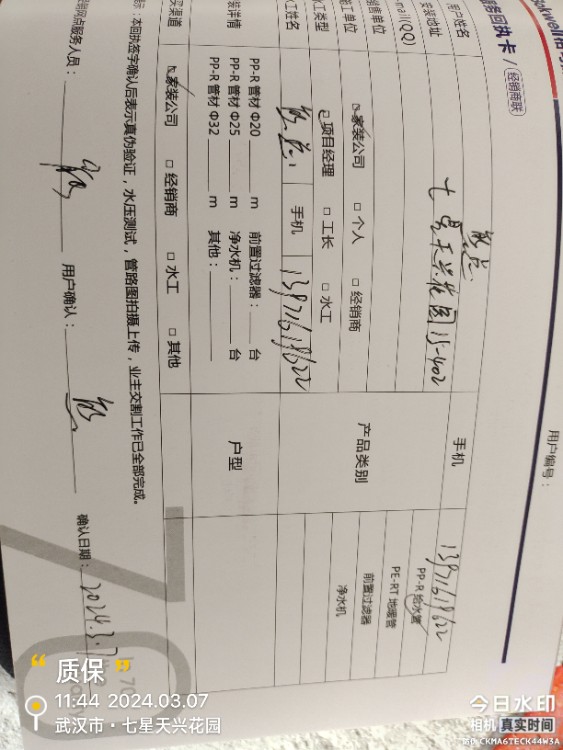 服务回执卡 / 经销商联
用户编号：
用户姓名 敖总 手机 13971619622
安装地址 七星天兴花园15-402
产品类别 PP-R 给水管
PE-RT 地暖管
前置过滤器
净水机
家装公司 □ 个人 □ 经销商
项目经理 □ 工长 □ 水工
手机 13971619622
户型
PP-R 管材 Φ20 m 前置过滤器： 台
PP-R 管材 Φ25 m 净水机： 台
PP-R 管材 Φ32 m 其他：
家装公司 □ 经销商 □ 水工 □ 其他
本回执签字确认后表示真伪验证，水压测试，管路图拍摄上传，业主交割工作已全部完成。
网点服务人员： 用户确认： 确认日期： 2024.3.7
“ 质保 ”
11:44 2024.03.07
武汉市·七星天兴花园
今日水印
相机 真实时间
CKMA6TECK44W3A